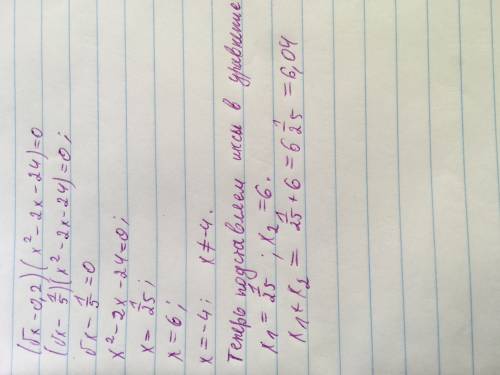 (√x - 0,2)(x² - 2x - 24) = 0
(√x - 1/5)(x² - 2x - 24) = 0;
√x - 1/5 = 0
x² - 2x - 24 = 0;
x = 1/25;
x = 6;
x = -4; x ≠ -4.
Теперь подставляем иксы в уравнение
x₁ = 1/25; x₂ = 6.
x₁ + x₂ = 1/25 + 6 = 6 1/25 = 6,04